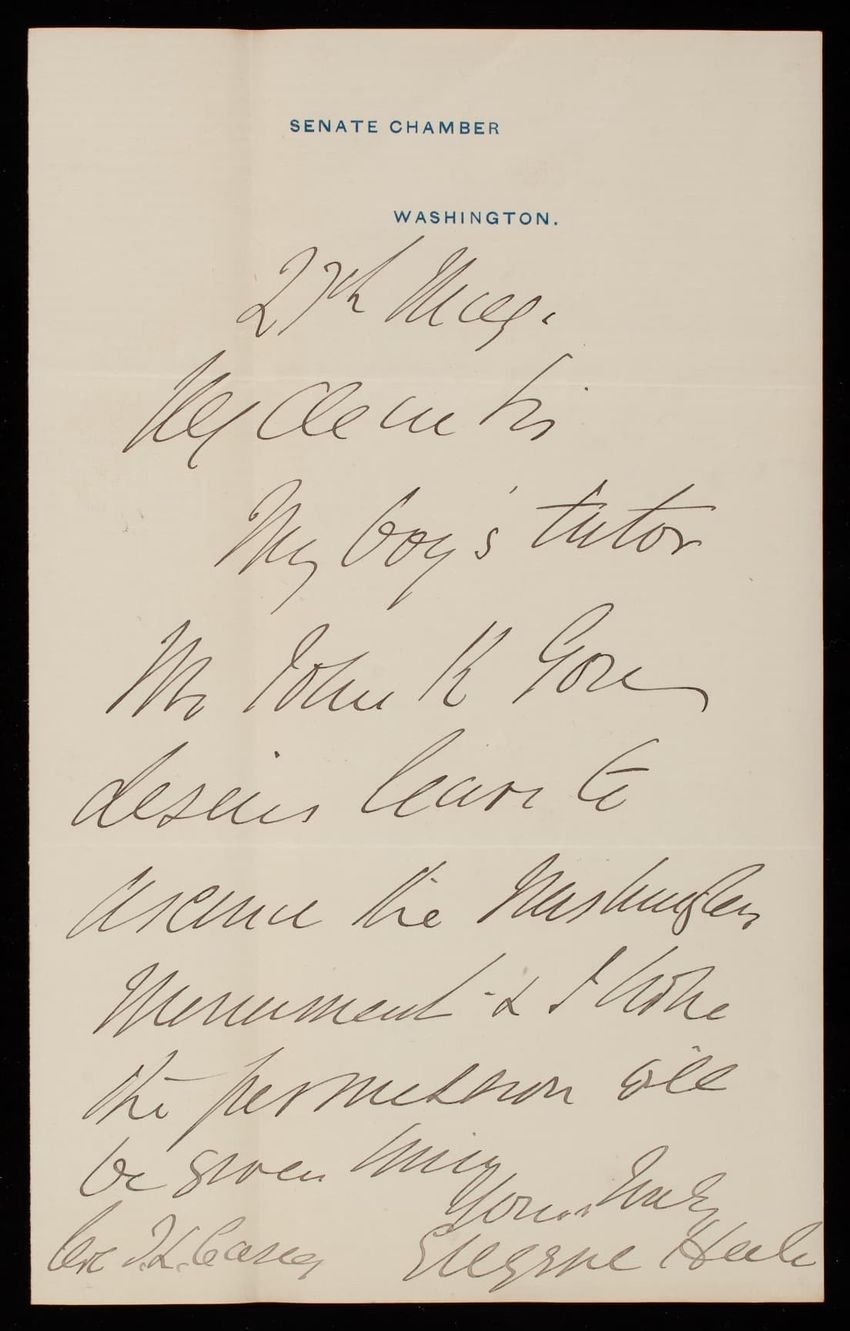 SENATE CHAMBER
WASHINGTON.
27th May.
My dear Sir
My boy's tutor
Mr John K Gore
desires leave to
ascend the Washington
Monument - & I hope
the permission will
be given him
Yours truly
Eugene Hale
Col T.L. Casey